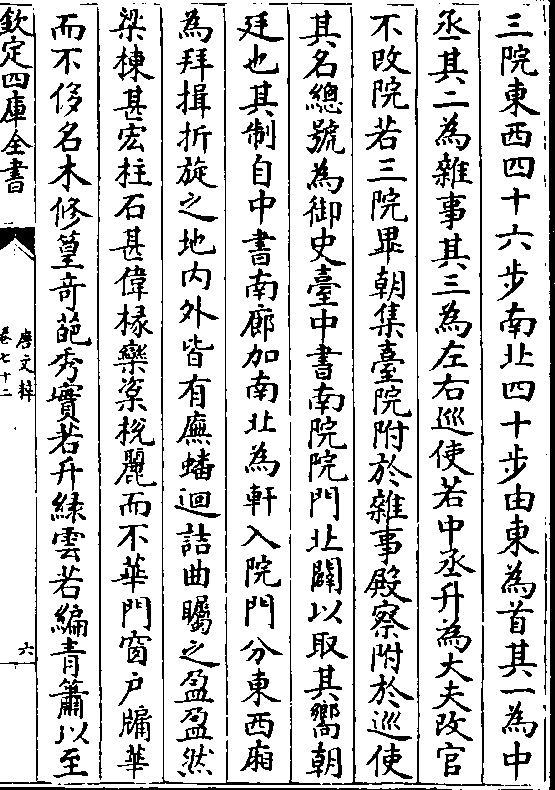 三院東西四十六步南北四十步由東為首其一為中
丞其二為雜事其三為左右巡使若中丞升為大夫改官
不改院若三院畢朝集臺院附於雜事殿察附於巡使
其名總號為御史臺中書南院院門北闢以取其嚮朝
廷也其制自中書南廊加南北為軒入院門分東西廂
為拜揖折旋之地內外皆有廡蟠迴詰曲矚之盈盈然
梁棟甚宏柱石甚偉椽欒粢梲麗而不華門窗戶牖華
而不侈名木修篁奇葩秀實若升綠雲若編青簫以至
欽定四庫全書
唐文粹
卷七十二
六